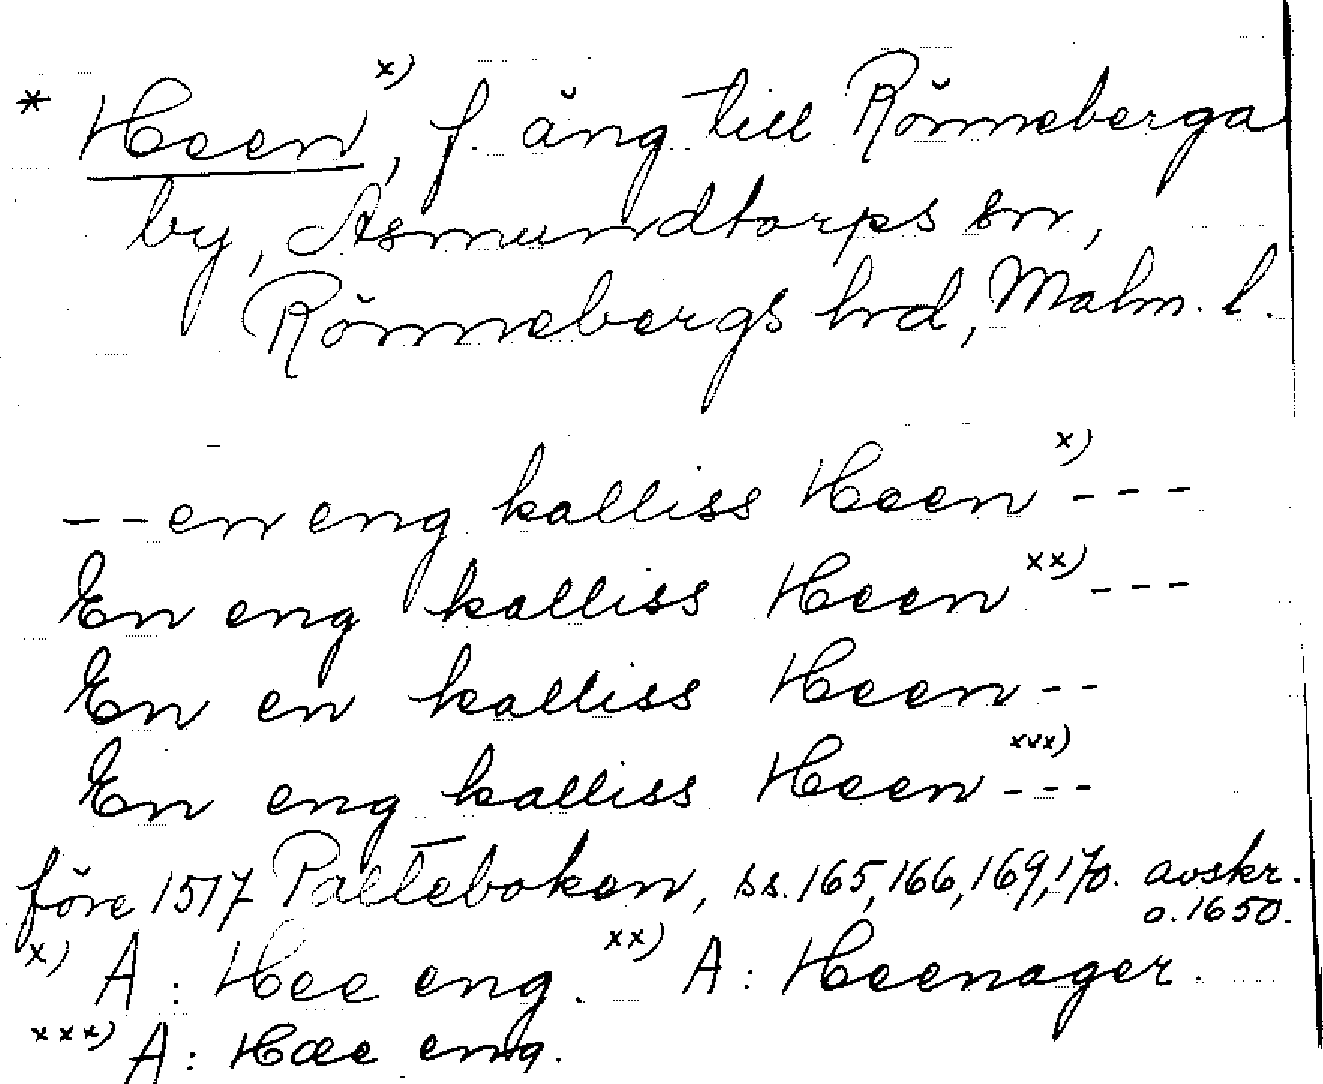 * Heen x), f. äng till Rönneberga
by, Asmundtorps sn,
Rönnebergs hd, Malm. l.
--en eng kalliss Heen x)---
En eng kalliss Heen xx)---
En en kalliss Heen--
En eng kalliss Heen xxx)---
före 1517 Palteboken, ss. 165,166,169,170. avskr.
o. 1650.
x) A: Hee eng. xx) A: Heenager.
xxx) A: Hæe eng.